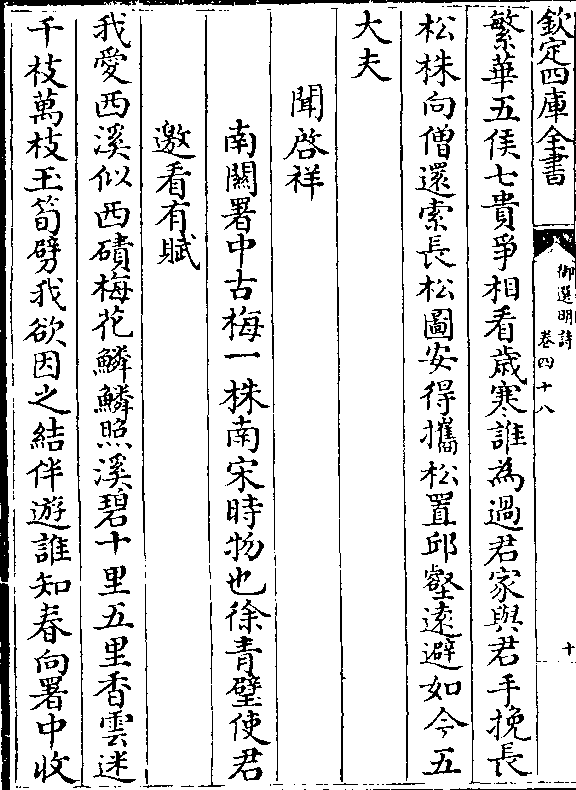 欽定四庫全書
御選明詩
卷四十八
十
繁華五侯七貴爭相看歲寒誰為過君家與君手挽長
松株向僧還索長松圖安得攜松置邱壑遠避如今五
大夫
聞啓祥
南關署中古梅一株南宋時物也徐青壁使君
邀看有賦
我愛西溪似西磧梅花鱗鱗照溪碧十里五里香雲迷
千枝萬枝玉笋劈我欲因之結伴遊誰知春向署中收